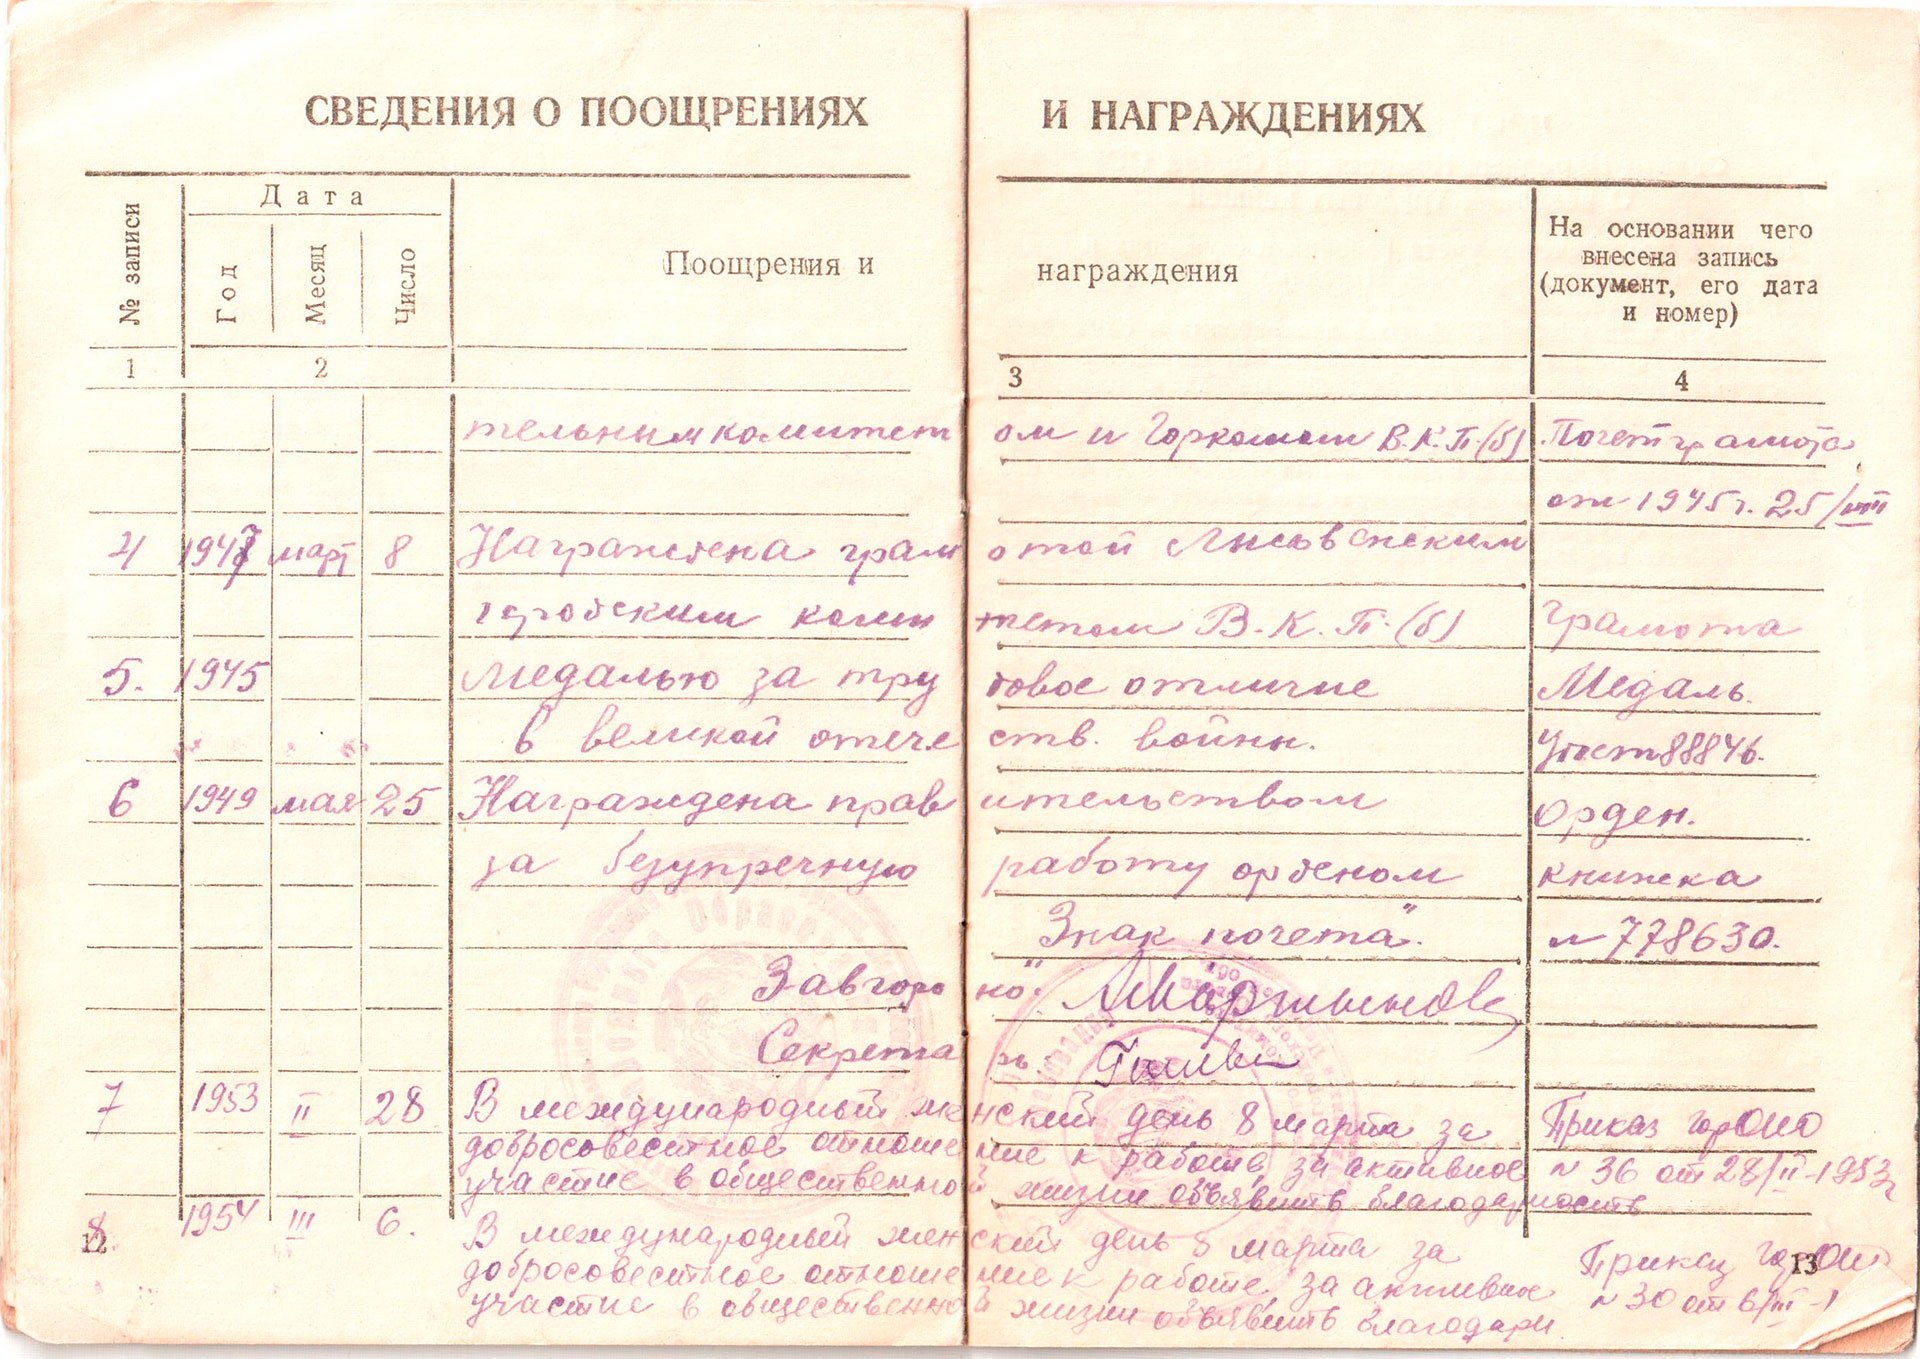 СВЕДЕНИЯ О ПООЩРЕНИЯХ И НАГРАЖДЕНИЯХ
№ записи
Дата
Год
Месяц
Число
Поощрения и награждения
На основании чего
внесена запись
(документ, его дата
и номер)
1 2 3 4
тельным комитетом и Горкомом В.К.П.(б) Почет грамота
от 1945г. 25/VIII
4 1947 март 8 Награждена грамотой Лысьвенским
городским комитетом В.К.П.(б) грамота
5. 1945 Медалью за трудовое отличие Медаль.
в великой отечеств. войны. Удост 88846.
6 1949 мая 25 Награждена правительством орден.
за безупречную работу орденом книжка
Знак почета". № 778630.
Завгороно": Мартынов
Секретарь:
7 1953 II 28 В международный женский день 8 марта за Приказ горОНО
добросовестное отношение к работе, за активное № 36 от 28/II-1953г
участие в общественной жизни объявить благодарность
8. 1954 III 6. В международный женский день 8 марта за Приказ горОНО
добросовестное отношение к работе, за активное № 30 от 6/III-1
участие в общественной жизни объявить благодарн
12 13